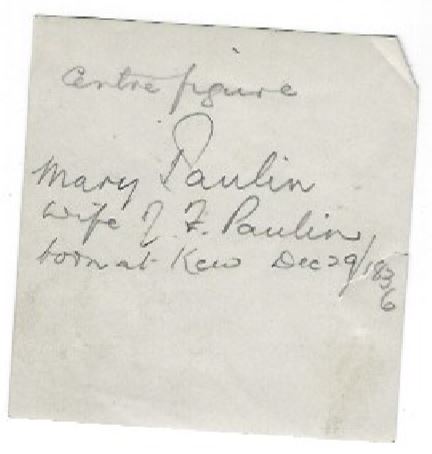 Centre figure
Mary Paulin
wife of F. Paulin
born at Kew Dec 29/1836